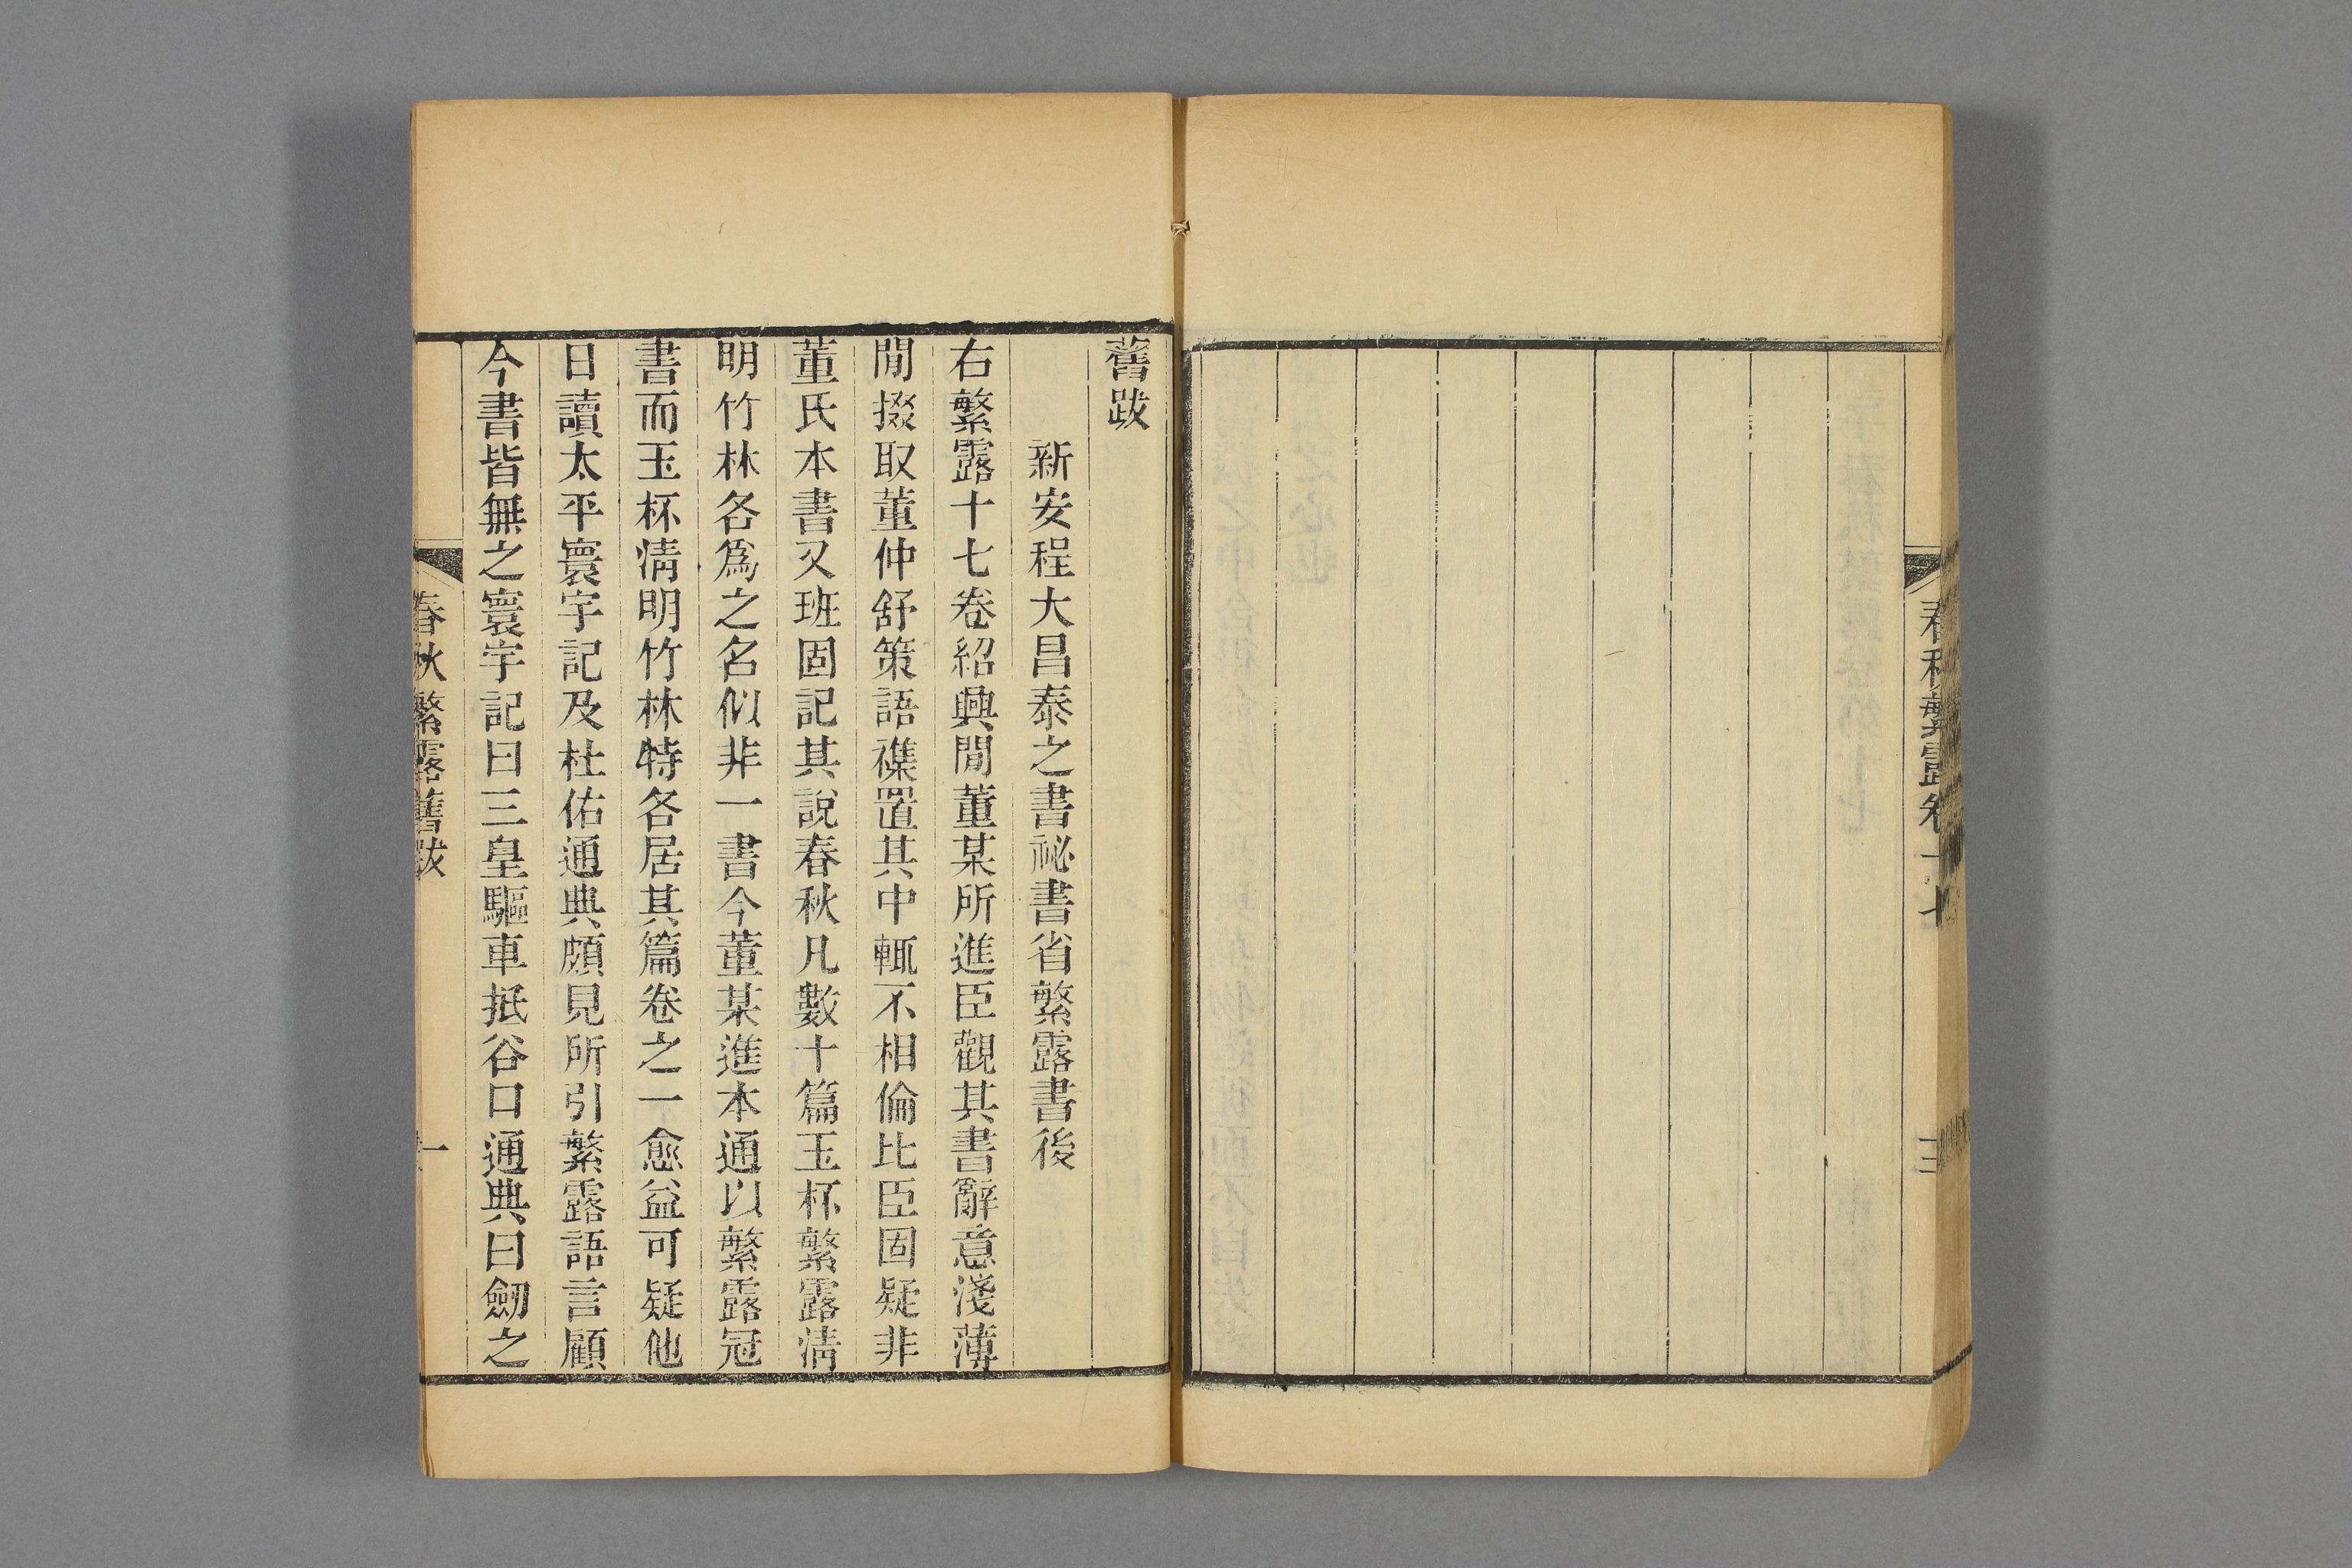 春秋繁露卷十七
三
舊跋
新安程大昌泰之書祕書省繁露書後
右繁露十七卷紹興閒董某所進臣觀其書辭意淺薄
閒掇取董仲舒策語襍置其中輒不相倫比臣固疑非
董氏本書又班固記其說春秋凡數十篇玉杯繁露淸
明竹林各爲之名似非一書今董某進本通以繁露冠
書而玉杯淸明竹林特各居其篇卷之一愈益可疑他
日讀太平寰宇記及杜佑通典頗見所引繁露語言顧
今書皆無之寰宇記曰三皇驅車抵谷口通典曰劒之
春秋繁露舊跋
一